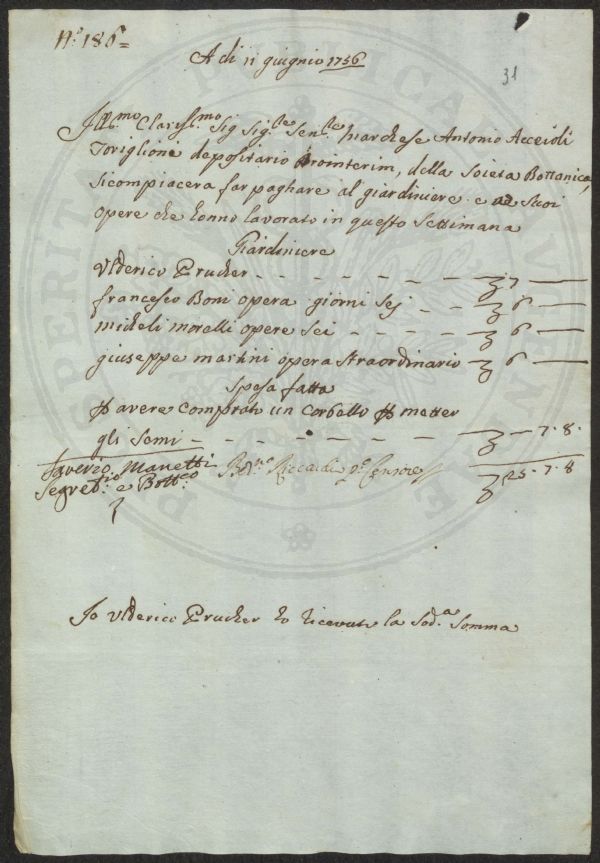 N.º 186=
A di 11 giugnio 1756
31
Ill.mo Clariss.mo Sig Sig.le Sen.le Marchese Antonio Acceioli
Toriglioni depositario prointerim, della Soieta Bottanica,
Sicompiacera far paghare al giardiniere e ad Suoi
opere che honno lavorato in questo Settimana
Giardiniere
Ulderico Prucher - - - - - - - 7 —
francesco Boni opera giorni Sej - - 6 —
micheli morelli opere Sei - - - - - 6 —
giuseppe martini opera Straordinario - 6 —
Spesa fatta
P avere comprato un corbello P metter
gli Semi - - - - - - - - — 7. 8.
Saverio Manetti
Segret.rio e Bott.co
Riccardi Censore
25. 7. 8
Io Ulderico Prucher ho ricevuto la Sod.a Somma
PROSPERITATI PUBLICAE